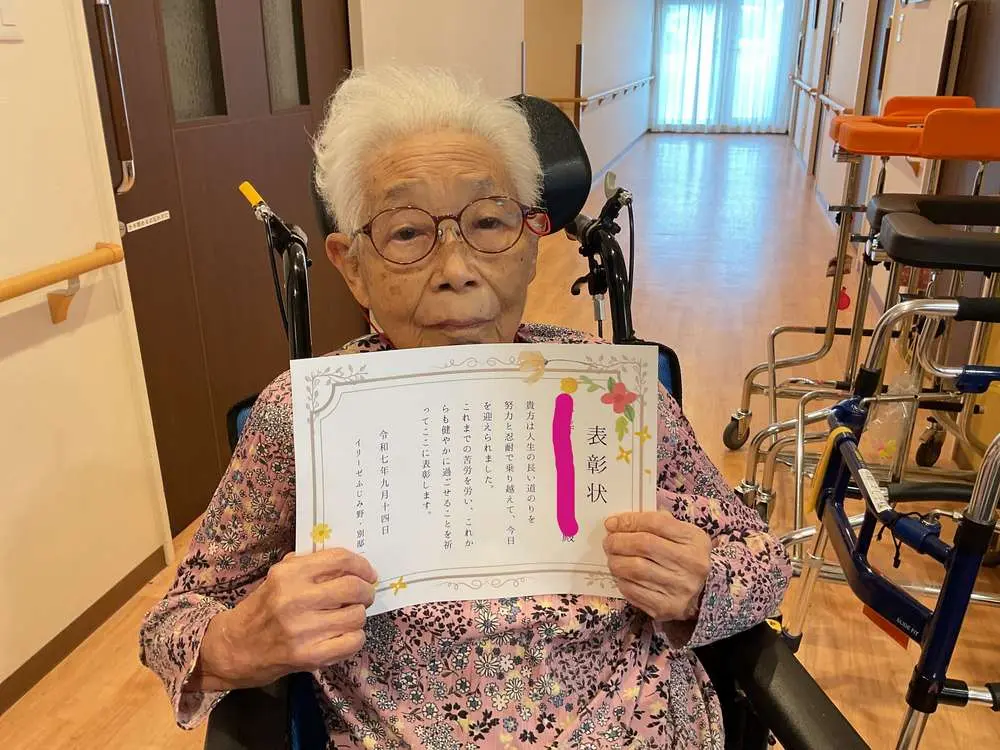 表彰状
殿
貴方は人生の長い道のりを
努力と忍耐で乗り越えて、今日
を迎えられました。
これまでの苦労を労い、これか
らも健やかに過ごせることを祈
ってここに表彰します。
令和七年九月十四日
イリーゼふじみ野・別邸
SLIDE FIT